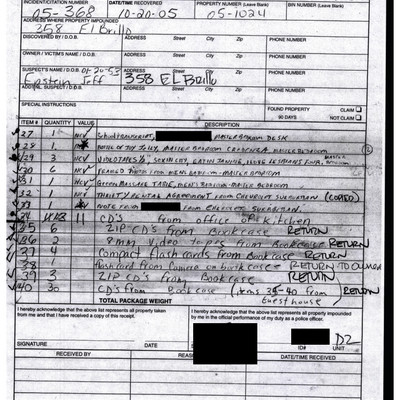 INCIDENT/CITATION NUMBER DATE/TIME RECOVERED PROPERTY NUMBER (Leave Blank) BIN NUMBER (Leave Blank)
05-368 10-20-05 05-1024
ADDRESS WHERE PROPERTY IMPOUNDED
358 El Brillo
DISCOVERED BY / D.O.B. ADDRESS Street City Zip PHONE NUMBER
OWNER / VICTIM'S NAME / D.O.B. ADDRESS Street City Zip PHONE NUMBER
SUSPECT'S NAME / D.O.B. 01-20-53 ADDRESS Street City Zip PHONE NUMBER
Epstein Jeff 358 EL Brillo
SUSPECT'S NAME / D.O.B. ADDRESS Street City Zip PHONE NUMBER
SPECIAL INSTRUCTIONS FOUND PROPERTY CLAIM
90 DAYS NOT CLAIM
ITEM # QUANTITY VALUE DESCRIPTION
27 1 NCV MASTER BEDROOM DESK
28 1 BOTTLE OF JOY JELLY, MASTER BEDROOM MASTER BEDROOM
29 3 NCV VIDEOTAPES MASTER BEDROOM
30 6 NCV FRAMED PHOTOS FROM MENS BATHROOM - MASTER BEDROOM
31 1 NCV GREEN MASSAGE TABLE, MENS BATHROOM - MASTER BEDROOM
32 1 NCV THRIFTY RENTAL AGREEMENT FROM CHEVROLET SUBURBAN (COPIED)
33 1 NCV NOTE FROM FROM CHEVROLET SUBURBAN.
34 11 CD's from office of kitchen
35 6 ZIP CD's from Bookcase RETURN
36 2 8mm Video tapes from Bookcase RETURN
37 4 Compact flashcards from Bookcase RETURN
38 1 flashcard from Camera on bookcase RETURN TO OWNER
39 3 ZIP CD's from Bookcase RETURN
40 30 CD's from Bookcase (items 35-40 from RETURN
Guesthouse)
TOTAL PACKAGE WEIGHT
I hereby acknowledge that the above list represents all property taken from me and that I have received a copy of this receipt.
I hereby acknowledge that the above list represents all property impounded by me in the official performance of my duty as a police officer.
D2
SIGNATURE DATE ID# UNIT
RECEIVED BY DATE/TIME RECEIVED